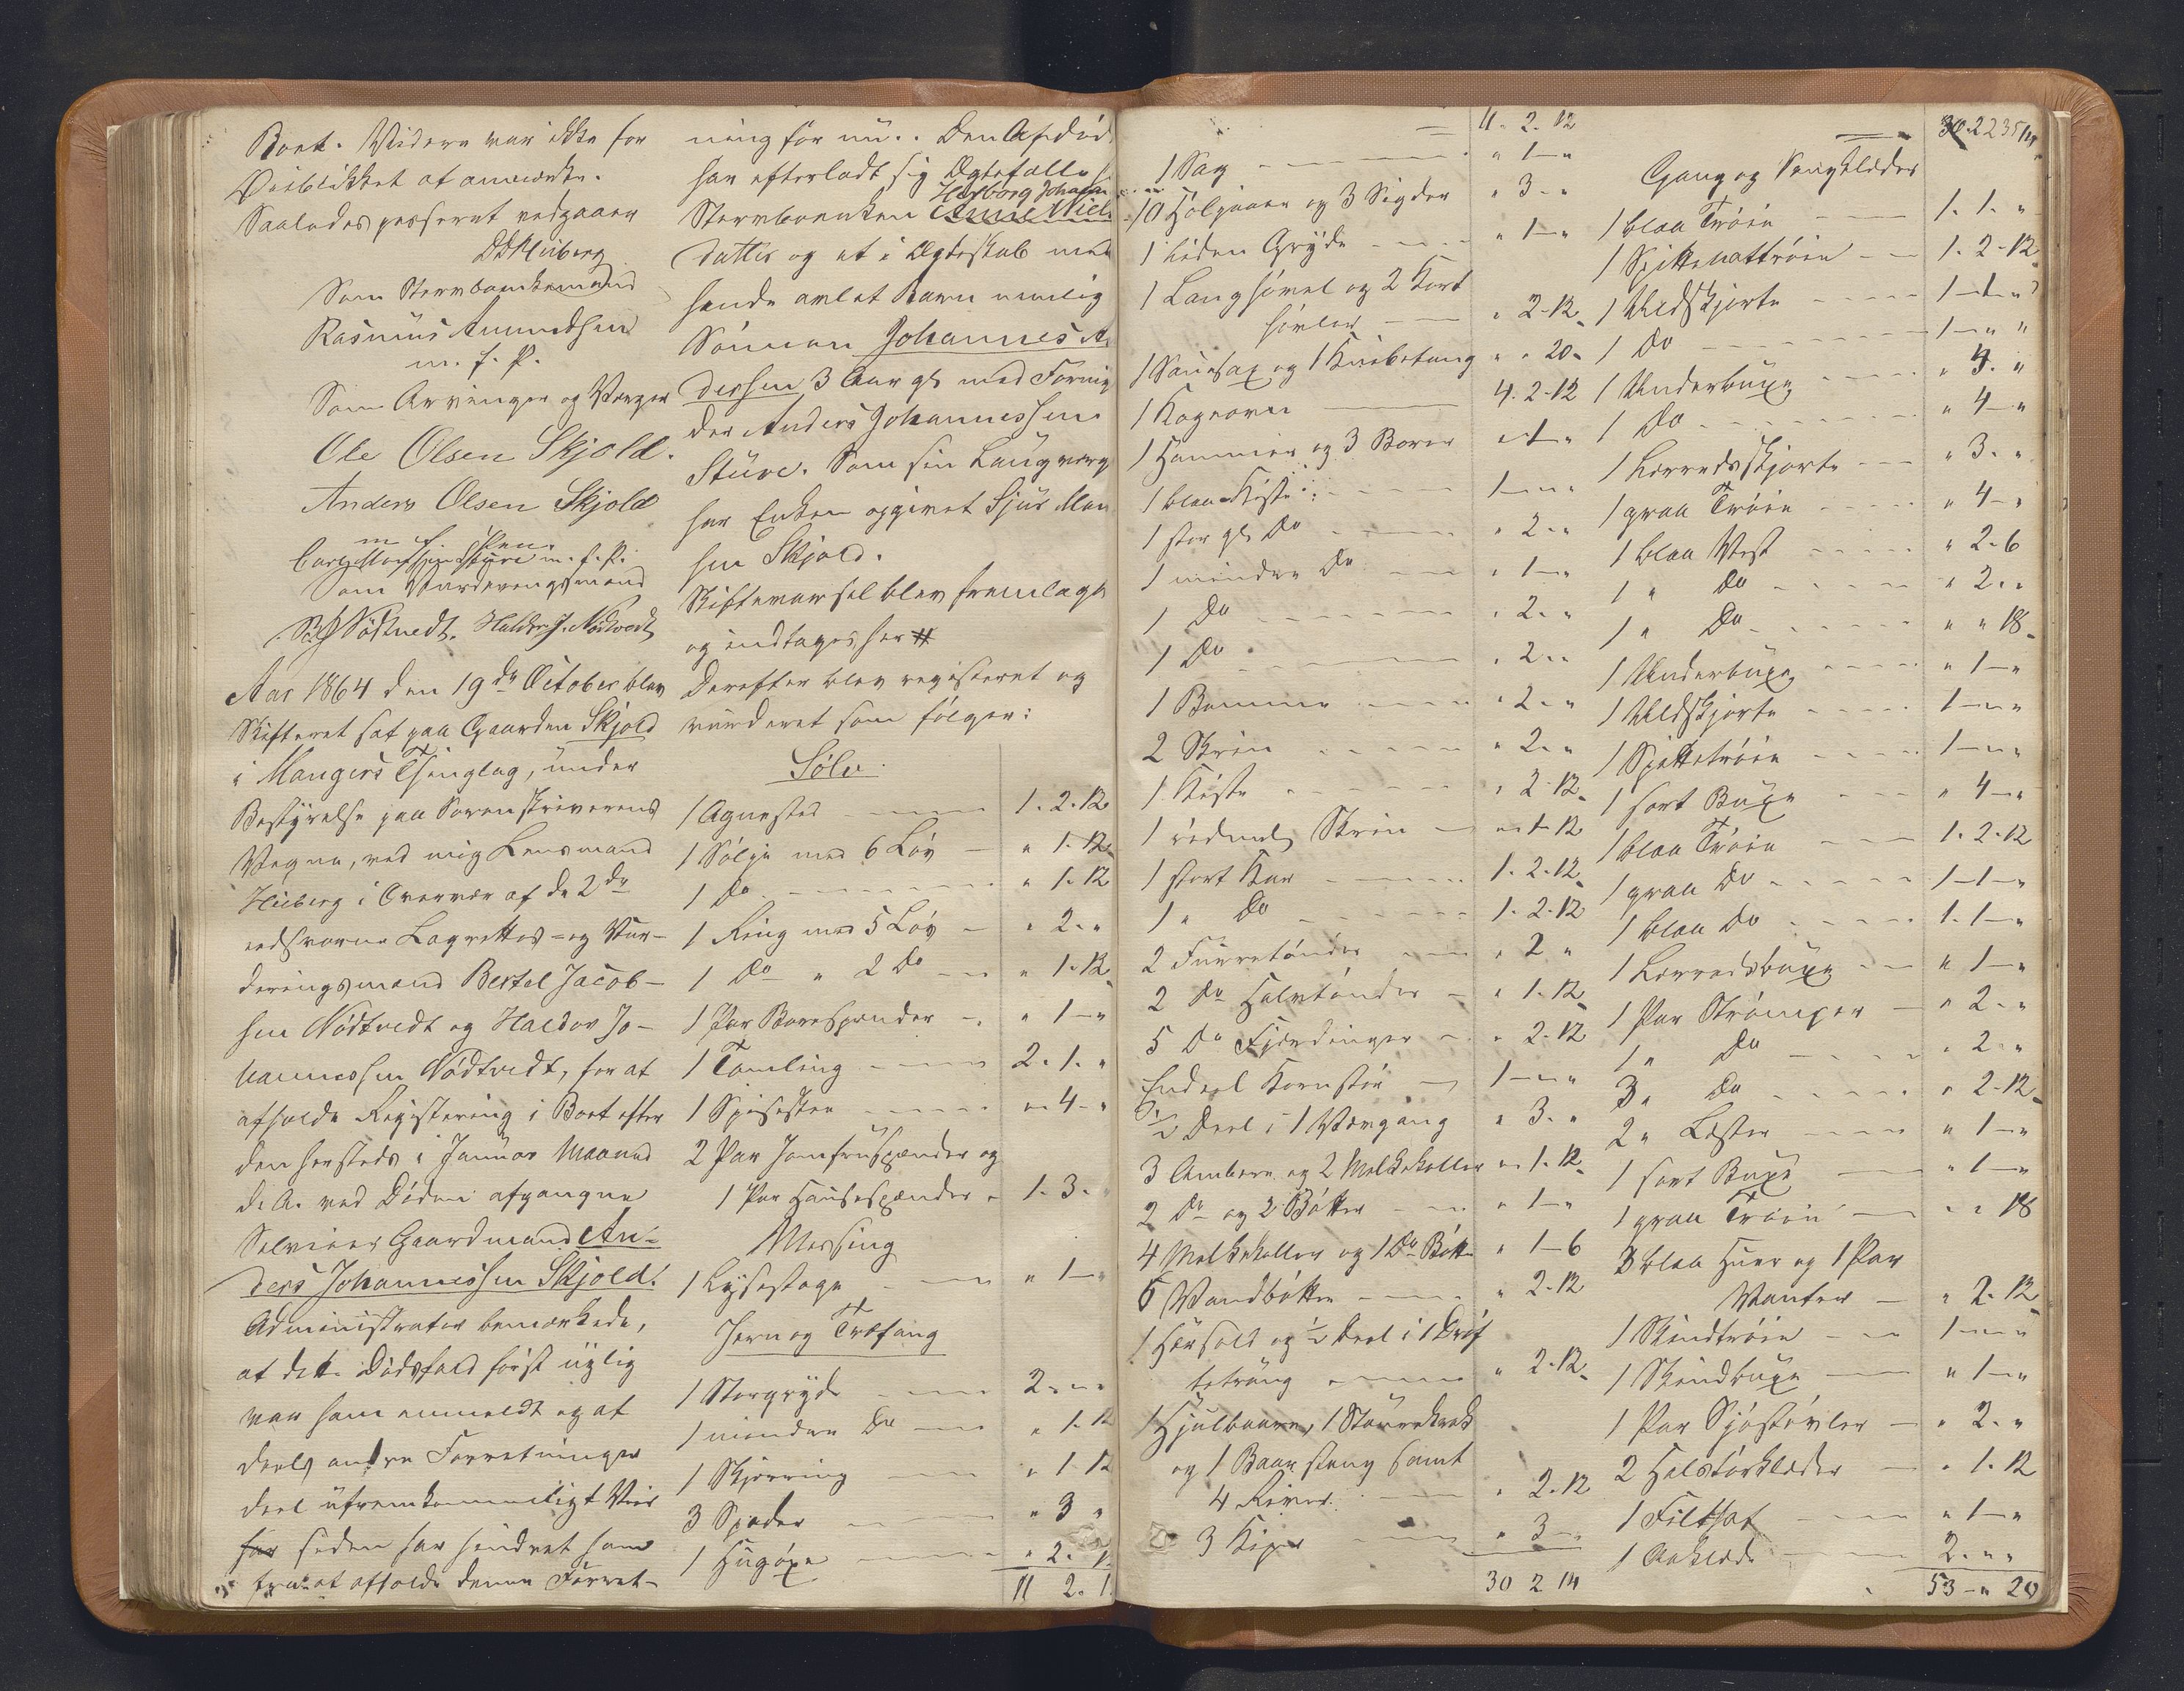 Boet. Videre var ikke for
Øieblikket at anmærke.
Saaledes passeret vedgaaer
DDHeiberg
Som Stervboenkemand
Rasmus Amundsen
m. f. P.
Som Arvinger og Verger
Ole Olsen Skjold.
Anders Olsen Skjold
m. f. Pen.
m. f. P.
Som Vurderingsmænd
Nødtvedt. Haldor J. Nødtvedt
Aar 1864 den 19de October blev
Skifteret sat paa Gaarden Skjold
i Mangers Thinglag, under
Bestyrelse paa Sorenskriverens
Vegne, ved mig Lensmand
Heiberg i Overvær af de 2de
eedsvorne Lagrettes- og Vur-
deringsmænd Bertel Jacob-
sen Nødtvedt og Haldor Jo-
hannessen Nødtvedt, for at
afholde Registering i Boet efter
den hersteds i Januar Maaned
d. A. ved Døden afgangne
Selveier Gaardmand An-
ders Johannessen Skjold.
Administrator bemærkede,
at dette Dødsfald først nylig
var ham anmeldt og at
deels andre Forretninger
deel ufremkommeligt Veir
for siden har hindret ham
fra at afholde denne Forret-
ning før nu. Den Afdøde
har efterladt sig Ægtefælle
Herborg Johann
Stervboenken Anne Niels
datter og et i Ægteskab med
hende avlet Barn nemlig
Sønnen Johannes An
dersen 3 Aar gl. med Formyn
der Anders Johannessen
Stuve. Som sin Laugverge
har Enken opgivet Sjur Mon
sen Skjold.
Skiftevarsel blev fremlagt
og indtages her #
Derefter blev registeret og
vurderet som følger:
Sølv.
1 Agnested 1. 2. 12
1 Sølje med 6 Løv " 1. 12
1 Do " 1. 12
1 Ring med 5 Løv " 2. "
1 Do " 2 Do " 1. 12
1 Par Borespænder " 1 "
1 Tomling 2. 1. "
1 Spiseskee " 4 "
2 Par Jomfruspænder og
1 Par Halsespænder 1. 3.
Messing
1 Lysestage " 1 "
Jern og Træfang
1 Storgryde 2. " "
1 mindre Do " 1. 12
1 Skjerring " 1 12
3 Spader " 3 "
1 Hugøxe " 2. 12
11 2. 12
11. 2. 12
1 Sag " 1 "
10 Høljaaer og 3 Sigder " 3. "
1 liden Gryde " 1 "
1 Langhøvel og 2 Kort
høvler " 2. 12
1 Sauesax og 1 Knibetang " " 20
1 Kogeovn 4. 2. 12
1 Hammer og 3 Borer " 1 "
1 blaa Kiste 1 " "
1 stor gl. Do " 2. "
1 mindre Do " 1 "
1 Do " 2. "
1 Do " 2. "
1 Bomme " 2. "
2 Skrin " 2. "
1 Kiste " 2. 12
1 rødmalt Skrin " 1. 12
1 stort Kar 1. 2. 12
1 " Do 1. 2. 12
2 Furretønder " 2 "
2 Do Halvtønder " 1. 12
5 Do Fjerdinger " 2. 12
Endeel Kornstør 1 " "
1/2 Deel i 1 Vævgang " 3. "
3 Ambere og 2 Melkekoller " 1. 12
2 Do og 2 Bøtter " 1 "
4 Melkekoller og 1 Do Bøtte " 1 6
6 Vandbøtter " 2. 12
1 Hørsold og 1/2 Deel i 1 Drøf
tetrøug " 2. 12
1 Hjulbaare, 1 Staurekrak
og 1 Baarestang samt
4 River " 2. 12
3 Kiper " 3 "
30 2 14
30. 2 14
Gang og Sengklæder
1 blaa Trøie 1. 1. "
1 Spittenattrøie 1. 2. 12
1 Uldskjorte 1 1 "
1 Do 1 " "
1 Underbuxe " 4. "
1 Do " 4 "
1 Lerredsskjorte " 3. "
1 graa Trøie " 4 "
1 blaa Vest " 2. 6
1 " Do " 2. "
1 " Do " " 18
1 Underbuxe " 1 "
1 Uldskjorte 1 " "
1 Spittetrøie 1 " "
1 sort Buxe " 4 "
1 blaa Trøie 1. 2. 12
1 graa Do 1 1 "
1 blaa Do 1. 1 "
1 Lerredsbuxe " 1 "
1 Par Strømper " 2. "
1 " Do " 2 "
3 " Do " 2. 12
2 " Læster " 1 "
1 sort Buxe " 1 "
1 graa Trøie " " 18
3 blaa Huer og 1 Par
Vanter " 2. 12
1 Skindtrøie 1 " "
1 Skindbuxe " 1 "
1 Par Sjøstøvler " 2. "
2 Halstørklæder " 1. 12
1 Filthat " 1 "
1 Aaklæde 2. " "
53 " 20